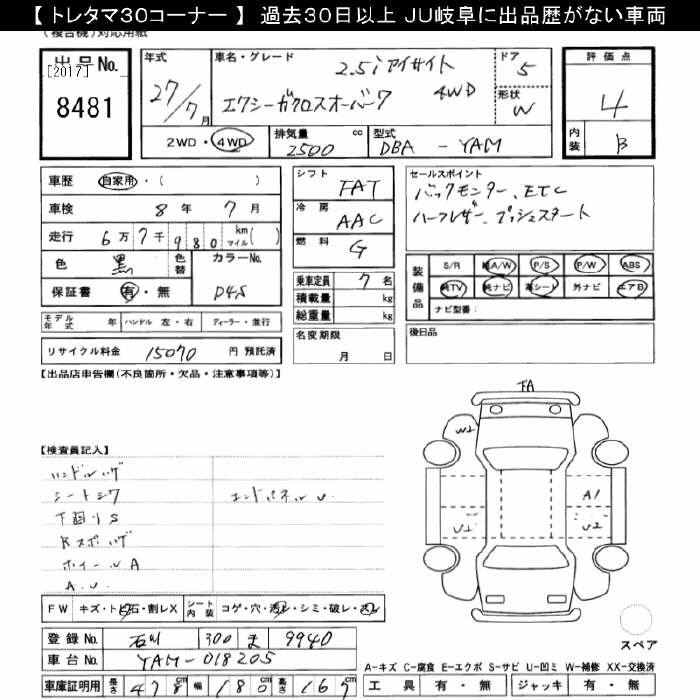 【 トレタマ30コーナー 】 過去30日以上 JU岐阜に出品歴がない車両
(複合機)対応用紙
出品No.
[2017]
8481
年式
27/7月
車名・グレード
2.5i アイサイト
エクシーガクロスオーバー7 4WD
ドア
5
形状
W
2WD・4WD
排気量
2500 cc
型式
DBA - YAM
評価点
4
内装
B
車歴 自家用・( )
車検 8年 7月
走行 6万7千980 km マイル( )
色 黒 色替
カラーNo.
D4S
保証書 有・無
モデル年式 年 ハンドル 左・右 ディーラー・並行
リサイクル料金 15070 円 預託済
シフト FAT
冷房 AAC
燃料 G
乗車定員 7 名
積載量 kg
総重量 kg
名変期限
月 日
セールスポイント
バックモニター、ETC
ハーフレザー、プッシュスタート
装備品
S/R 純A/W P/S P/W ABS
純TV 純ナビ 革シート 外ナビ エアB
ナビ型番:
後日品
【出品店申告欄(不良箇所・欠品・注意事項等)】
【検査員記入】
ハンドルスレ
シートシワ
エンドパネルU
下回りS
ホイールA
A.U
FA
W1
A1
U1
U2
FW キズ・トビ石・割レX シート内装 コゲ・穴・汚レ・シミ・破レ・スレ
スペア
登録No. 石川 300 ま 9940
車台No. YAM-018205
車庫証明用 長さ 478cm 幅 180cm 高さ 167cm
A-キズ C-腐食 E-エクボ S-サビ U-凹ミ W-補修 XX-交換済
工具 有・無 ジャッキ 有・無